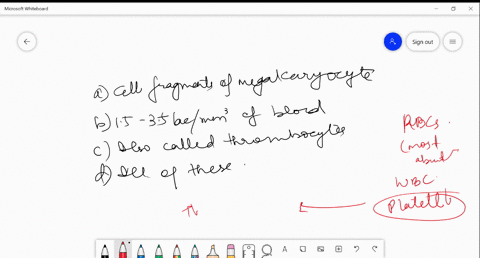 Microsoft Whiteboard
Sign out
a) Cell fragments of megakaryocyte
b) 1.5 – 3.5 lac/mm³ of blood
c) Also called thrombocytes
d) All of these.
RBCs.
(most
abund
WBC.
A